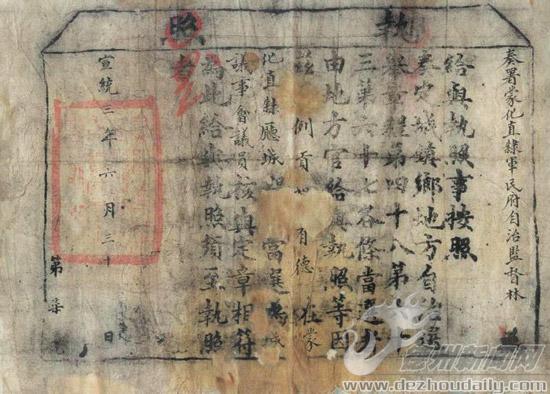 執照
奏署蒙化直隸軍民府自治監督林
給與執照事按照
定城鎮鄉地方自治選
舉章程第四十八第
三第六十七各條當選
由地方官給與執照等因
例貢 有德 在蒙
化直隸廳城 當選為城
議事會議員核與定章相符
為此給與執照須至執照
者
宣統三年六月三十 日
第 柒
德州新闻网
www.dezhoudaily.com